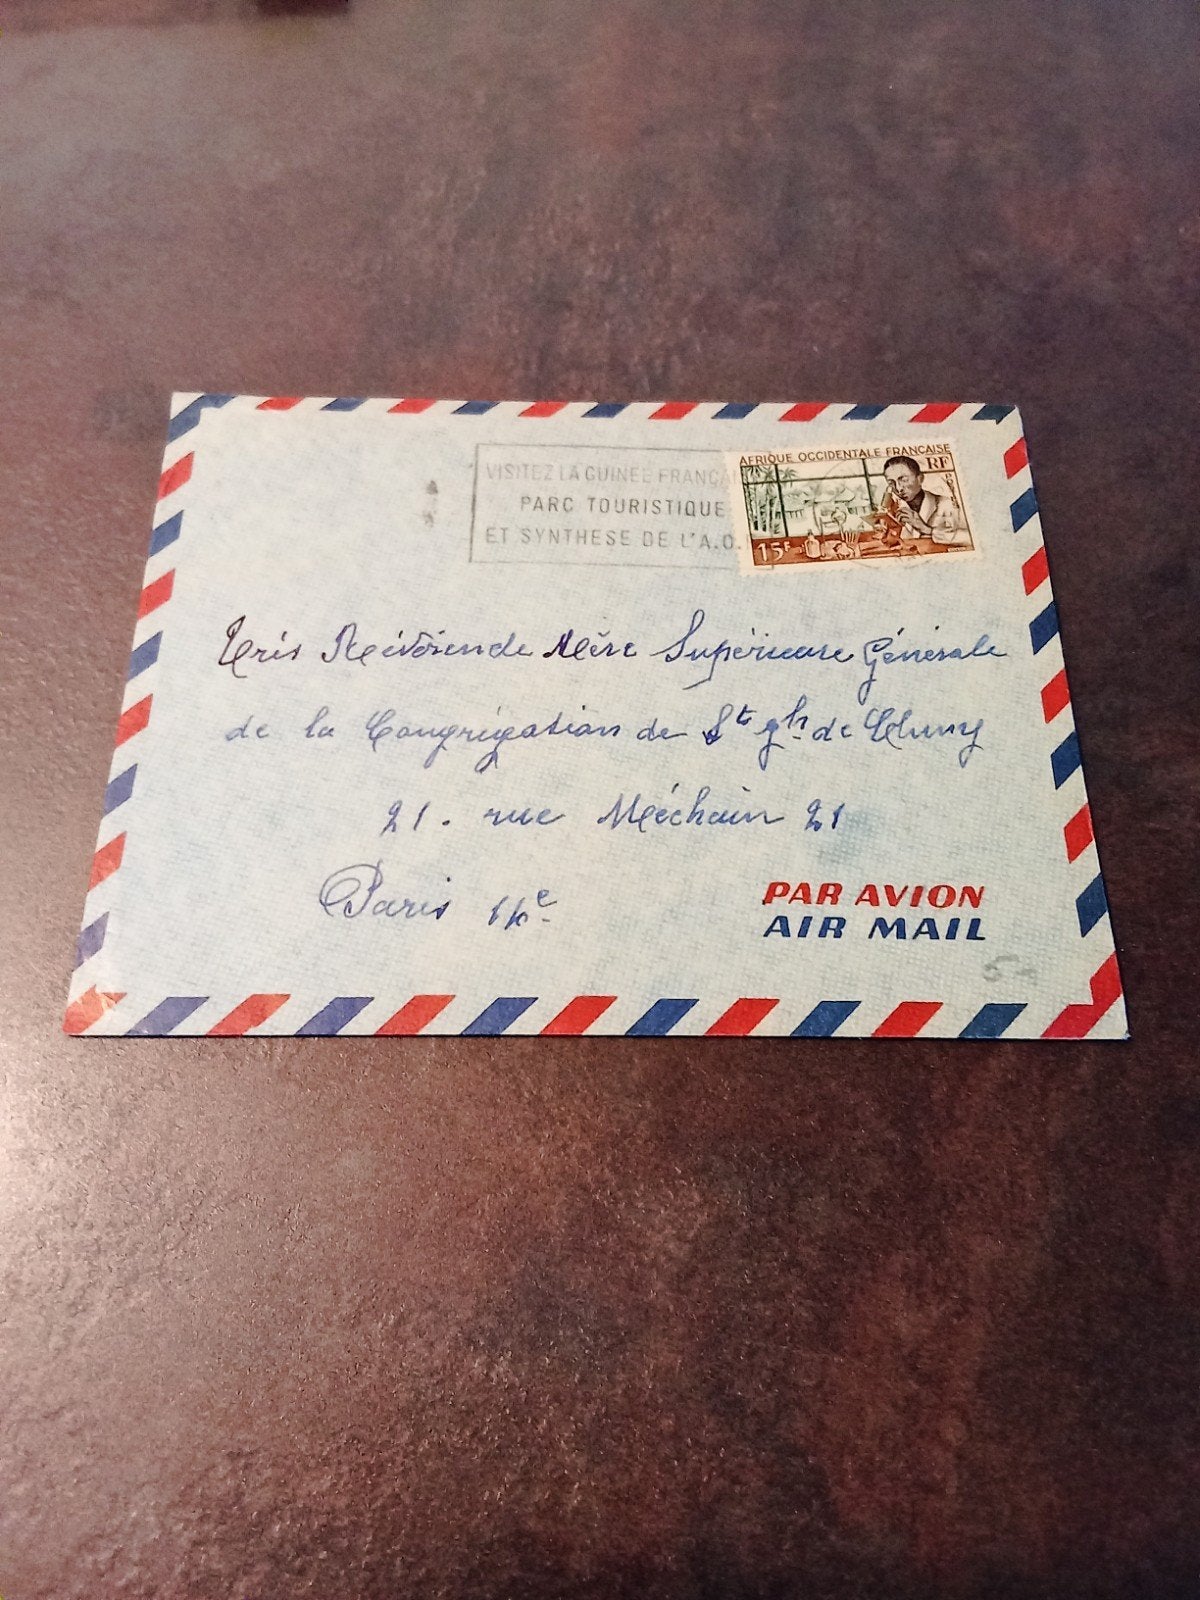 VISITEZ LA GUINEE FRANÇAI
PARC TOURISTIQUE
ET SYNTHESE DE L'A.O.
AFRIQUE OCCIDENTALE FRANÇAISE
RF
15F
Très Révérende Mère Supérieure Générale
de la Congrégation de St Jh de Cluny
21. rue Méchain 21
Paris 14e
PAR AVION
AIR MAIL
5-